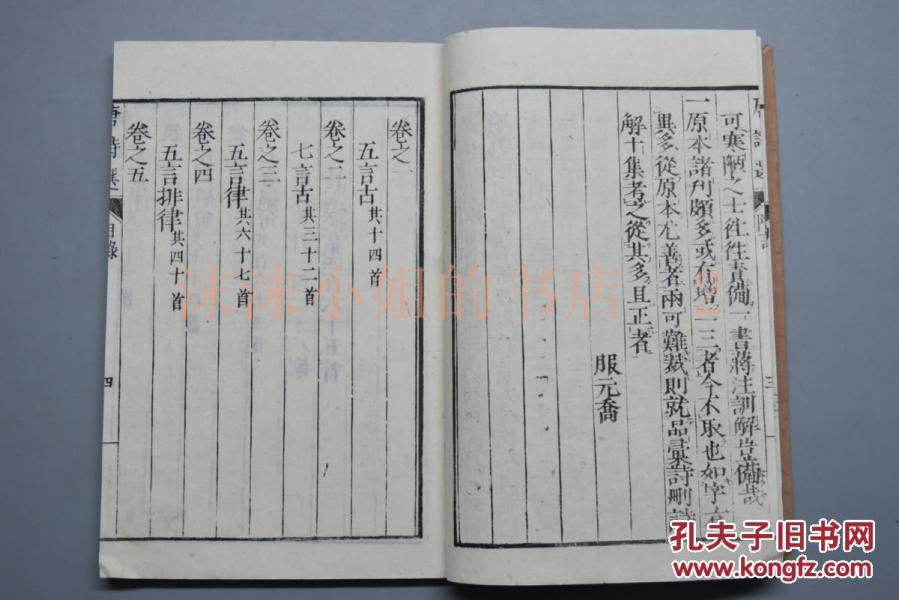 可寒陋之士往往責備一書蔣注訓解豈備哉
一原本諸刋頗多或有增一二三者今不取也如字有
異多從原本尤善者兩可難裁則就品彙詩刪詩
解十集考之從其多且正者
服元喬
唐詩選
目錄
四
卷之一
五言古 其十四首
卷之二
七言古 其三十二首
卷之三
五言律 其六十七首
卷之四
五言排律 其四十首
卷之五
沫沫小姐的书店
2
孔夫子旧书网
www.kongfz.com